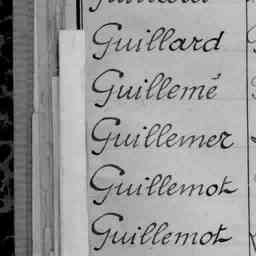 Guillard
Guillemé
Guillemer
Guillemot
Guillemot